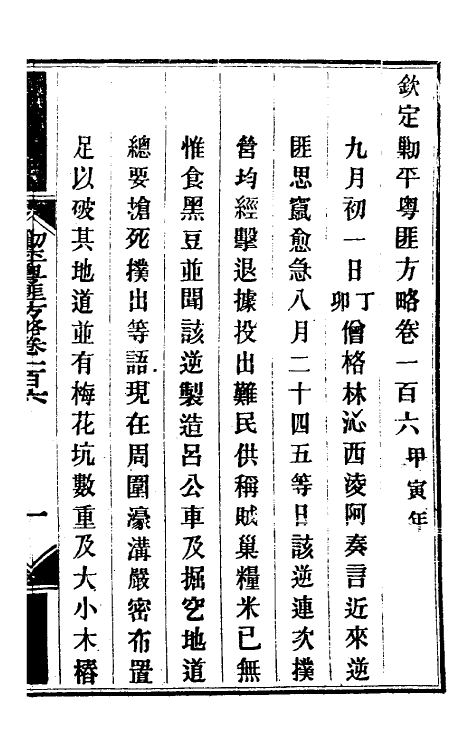 欽定勦平粵匪方略卷一百六甲寅年
九月初一日丁卯僧格林沁西淩阿奏言近來逆
匪思竄愈急八月二十四五等日該逆連次撲
營均經擊退據投出難民供稱賊巢糧米已無
惟食黑豆並聞該逆製造呂公車及掘空地道
總要搶死撲出等語現在周圍濠溝嚴密布置
足以破其地道並有梅花坑數重及大小木樁
粵匪方略卷一百六
一